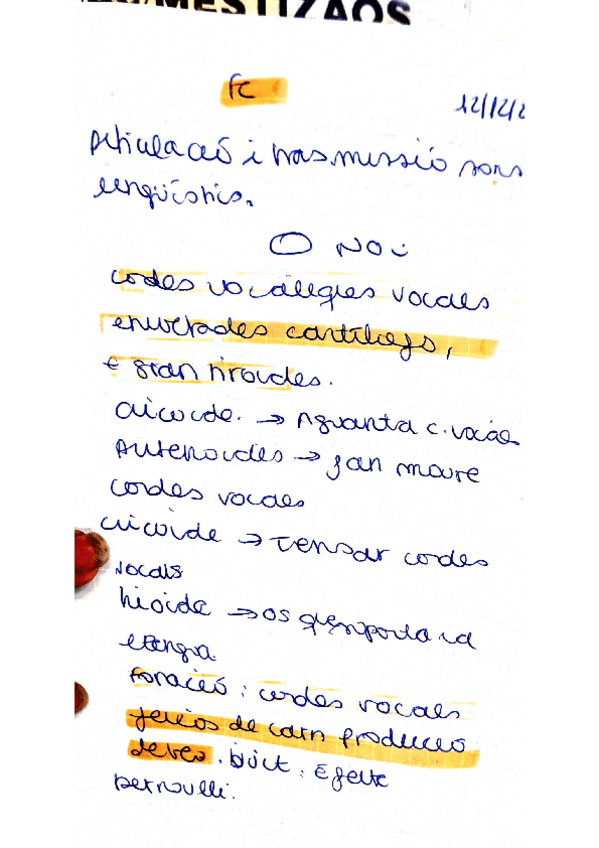 MESTIZAOS
FC
12/12/2
Articulació i trasmissió sons
lingüístics.
NO
cordes vocals
envoltades cartílags,
gran tiroides.
cricoide. → Aguanta c. vocals
Aritenoides → fan moure
cordes vocals
cricoide → Tensar cordes
vocals
hioide → os que suporta la
llengua
Fonació: cordes vocals
de carn producció
de veu. buit: Efecte
Bernoulli.